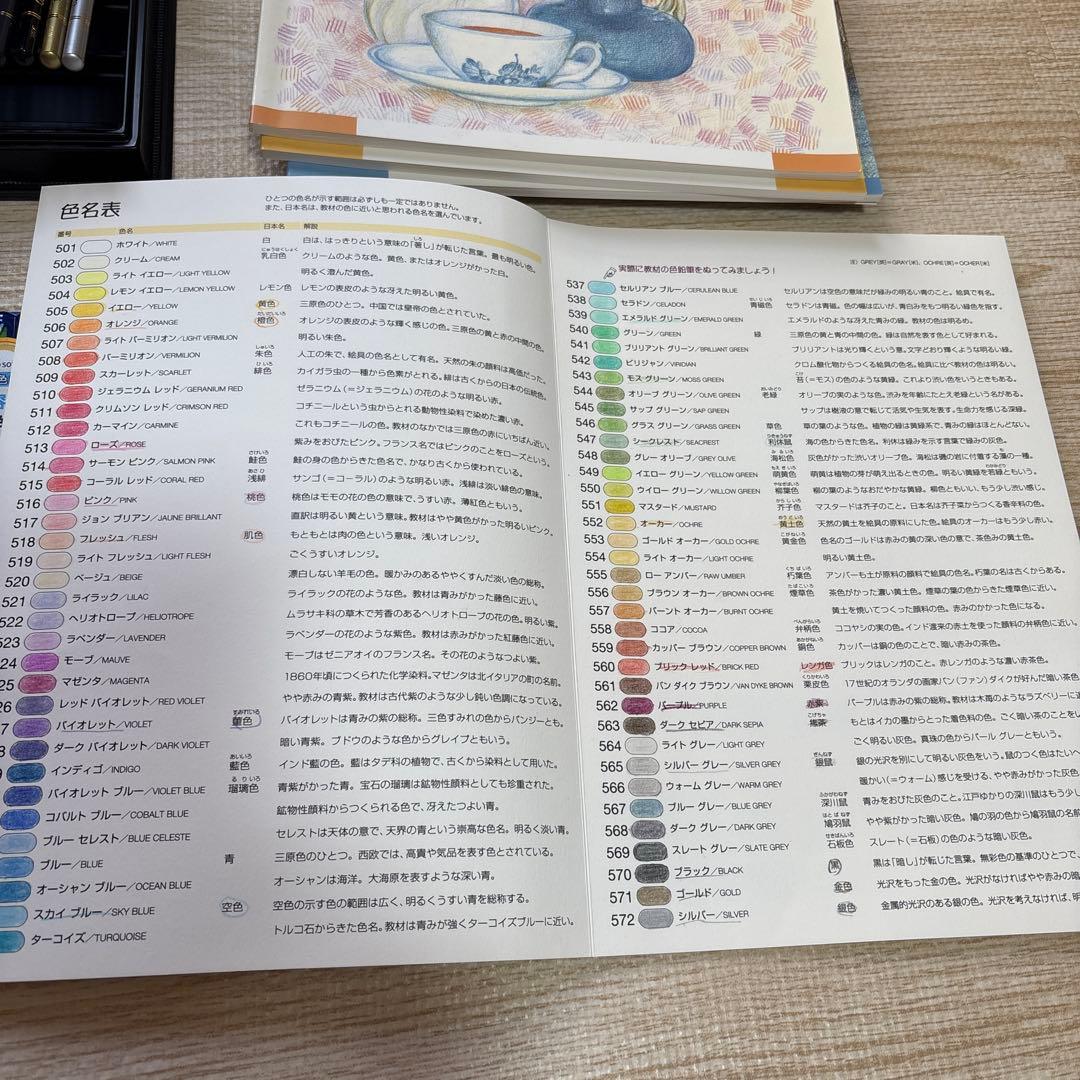 色名表
ひとつの色名が示す範囲は必ずしも一定ではありません。
また、日本名は、教材の色に近いと思われる色名を選んでいます。
番号 色名 日本名 解説
501 ホワイト/WHITE 白 白は、はっきりという意味の「著し」が転じた言葉。最も明るい色。
502 クリーム/CREAM 乳白色 クリームのような色。黄色、またはオレンジがかった白。
503 ライト イエロー/LIGHT YELLOW 明るく澄んだ黄色。
504 レモン イエロー/LEMON YELLOW レモン色 レモンの表皮のような冴えた明るい黄色。
505 イエロー/YELLOW 黄色 三原色のひとつ。中国では皇帝の色とされていた。
506 オレンジ/ORANGE 橙色 オレンジの表皮のような輝く感じの色。三原色の黄と赤の中間の色。
507 ライト バーミリオン/LIGHT VERMILION 明るい朱色。
508 バーミリオン/VERMILION 朱色 人工の朱で、絵具の色名として有名。天然の朱の顔料は高価だった。
509 スカーレット/SCARLET 緋色 カイガラ虫の一種から色素がとれる。緋は古くからの日本の伝統色。
510 ジェラニウム レッド/GERANIUM RED ゼラニウム(=ジェラニウム)の花のような明るい赤。
511 クリムソン レッド/CRIMSON RED コチニールという虫からとれる動物性染料で染めた濃い赤。
512 カーマイン/CARMINE これもコチニールの色。教材のなかでは三原色の赤にいちばん近い。
513 ローズ/ROSE 紫みをおびたピンク。フランス名ではピンクのことをローズという。
514 サーモン ピンク/SALMON PINK 鮭色 鮭の身の色からきた色名で、かなり古くから使われている。
515 コーラル レッド/CORAL RED 浅緋 サンゴ(=コーラル)のような明るい赤。浅緋は淡い緋色の意味。
516 ピンク/PINK 桃色 桃色はモモの花の色の意味で、うすい赤。薄紅色ともいう。
517 ジョン ブリアン/JAUNE BRILLANT 直訳は明るい黄という意味。教材はやや黄色がかった明るいピンク。
518 フレッシュ/FLESH 肌色 もともとは肉の色という意味。浅いオレンジ。
519 ライト フレッシュ/LIGHT FLESH ごくうすいオレンジ。
520 ベージュ/BEIGE 漂白しない羊毛の色。暖かみのあるややくすんだ淡い色の総称。
521 ライラック/LILAC ライラックの花のような色。教材は青みがかった藤色に近い。
522 ヘリオトロープ/HELIOTROPE ムラサキ科の草木で芳香のあるヘリオトロープの花の色。明るい紫。
523 ラベンダー/LAVENDER ラベンダーの花のような紫色。教材は赤みがかった紅藤色に近い。
24 モーブ/MAUVE モーブはゼニアオイのフランス名。その花のようなつよい紫。
25 マゼンタ/MAGENTA 1860年頃につくられた化学染料。マゼンタは北イタリアの町の名前。
26 レッド バイオレット/RED VIOLET やや赤みの青紫。教材は古代紫のような少し鈍い色調になっている。
7 バイオレット/VIOLET 菫色 バイオレットは青みの紫の総称。三色すみれの色からパンジーとも。
8 ダーク バイオレット/DARK VIOLET 暗い青紫。ブドウのような色からグレイプともいう。
9 インディゴ/INDIGO 藍色 インド藍の色。藍はタデ科の植物で、古くから染料として用いた。
バイオレット ブルー/VIOLET BLUE 瑠璃色 青紫がかった青。宝石の瑠璃は鉱物性顔料としても珍重された。
コバルト ブルー/COBALT BLUE 鉱物性顔料からつくられる色で、冴えたつよい青。
ブルー セレスト/BLUE CELESTE セレストは天体の意で、天界の青という崇高な色名。明るく淡い青。
ブルー/BLUE 青 三原色のひとつ。西欧では、高貴や気品を表す色とされている。
オーシャン ブルー/OCEAN BLUE オーシャンは海洋。大海原を表すような深い青。
スカイ ブルー/SKY BLUE 空色 空色の示す色の範囲は広く、明るくうすい青を総称する。
ターコイズ/TURQUOISE トルコ石からきた色名。教材は青みが強くターコイズブルーに近い。
注)GREY[英]=GRAY[米]、OCHRE[英]=OCHER[米]
実際に教材の色鉛筆をぬってみましょう!
537 セルリアン ブルー/CERULEAN BLUE セルリアンは空色の意味だが緑みの明るい青のこと。絵具で有名。
538 セラドン/CELADON 青磁色 セラドンは青磁。色の幅は広いが、青白みをもつ明るい緑色を指す。
539 エメラルド グリーン/EMERALD GREEN エメラルドのような冴えた青みの緑。教材の色は明るめ。
540 グリーン/GREEN 緑 三原色の黄と青の中間の色。緑は自然を表す色として好まれる。
541 ブリリアント グリーン/BRILLIANT GREEN ブリリアントは光り輝くという意。文字どおり輝くような明るい緑。
542 ビリジャン/VIRIDIAN クロム酸化物からつくる絵具の色名。絵具に比べ教材の色は明るい。
543 モス グリーン/MOSS GREEN 苔(=モス)の色のような黄緑。これより渋い色をいうときもある。
544 オリーブ グリーン/OLIVE GREEN 老緑 オリーブの実のような色。渋みを年齢にたとえ老緑という名がある。
545 サップ グリーン/SAP GREEN サップは樹液の意で転じて活気や生気を表す。生命力を感じる深緑。
546 グラス グリーン/GRASS GREEN 草色 草の葉のような色。植物の緑は黄緑系で、青みの緑はほとんどない。
547 シークレスト/SEACREST 利休鼠 海の色からきた色名。利休は緑みを示す言葉で緑みの灰色。
548 グレー オリーブ/GREY OLIVE 海松色 灰色がかった渋いオリーブ色。海松は磯の岩に付着する藻の一種。
549 イエロー グリーン/YELLOW GREEN 萌黄色 萌黄は植物の芽が萌え出るときの色。明るい黄緑を若緑ともいう。
550 ウイロー グリーン/WILLOW GREEN 柳葉色 柳の葉のようなおだやかな黄緑。柳色ともいい、もう少し渋い感じ。
551 マスタード/MUSTARD 芥子色 マスタードは芥子のこと。日本名は芥子菜からつくる香辛料の色。
552 オーカー/OCHRE 黄土色 天然の黄土を絵具の原料にした色。絵具のオーカーはもう少し赤い。
553 ゴールド オーカー/GOLD OCHRE 黄金色 色名のゴールドは赤みの黄の深い色の意で、茶色みの黄土色。
554 ライト オーカー/LIGHT OCHRE 明るい黄土色。
555 ロー アンバー/RAW UMBER 朽葉色 アンバーも土が原料の顔料で絵具の色名。朽葉の名は古くからある。
556 ブラウン オーカー/BROWN OCHRE 煙草色 茶色がかった濃い黄土色。煙草の葉の色からきた煙草色に近い。
557 バーント オーカー/BURNT OCHRE 黄土を焼いてつくった顔料の色。赤みのかかった色になる。
558 ココア/COCOA 弁柄色 ココヤシの実の色。インド渡来の赤土を使った顔料の弁柄色に近い。
559 カッパー ブラウン/COPPER BROWN 銅色 カッパーは銅の色のことで、暗い赤みの茶色。
560 ブリック レッド/BRICK RED レンガ色 ブリックはレンガのこと。赤レンガのような濃い赤茶色。
561 バン ダイク ブラウン/VAN DYKE BROWN 栗皮色 17世紀のオランダの画家バン(ファン)ダイクが好んだ暗い茶色
562 パープル/PURPLE 赤紫 パープルは赤みの紫の総称。教材は木苺のようなラズベリーに近
563 ダーク セピア/DARK SEPIA 焦茶 もとはイカの墨からとった着色料の色。ごく暗い茶のことをい
564 ライト グレー/LIGHT GREY ごく明るい灰色。真珠の色からパール グレーともいう。
565 シルバー グレー/SILVER GREY 銀鼠 銀の光沢を別にして明るい灰色をいう。鼠のつく色はたいへ
566 ウォーム グレー/WARM GREY 暖かい(=ウォーム)感じを受ける、やや赤みがかった灰色
567 ブルー グレー/BLUE GREY 深川鼠 青みをおびた灰色のこと。江戸ゆかりの深川鼠はもう少し
568 ダーク グレー/DARK GREY 鳩羽鼠 やや紫がかった暗い灰色。鳩の羽の色から鳩羽鼠の名前
569 スレート グレー/SLATE GREY 石板色 スレート(=石板)の色のような暗い灰色。
570 ブラック/BLACK 黒 黒は「暗し」が転じた言葉。無彩色の基準のひとつで、
571 ゴールド/GOLD 金色 光沢をもった金の色。光沢がなければやや赤みの暗
572 シルバー/SILVER 銀色 金属的光沢のある銀の色。光沢を考えなければ、明